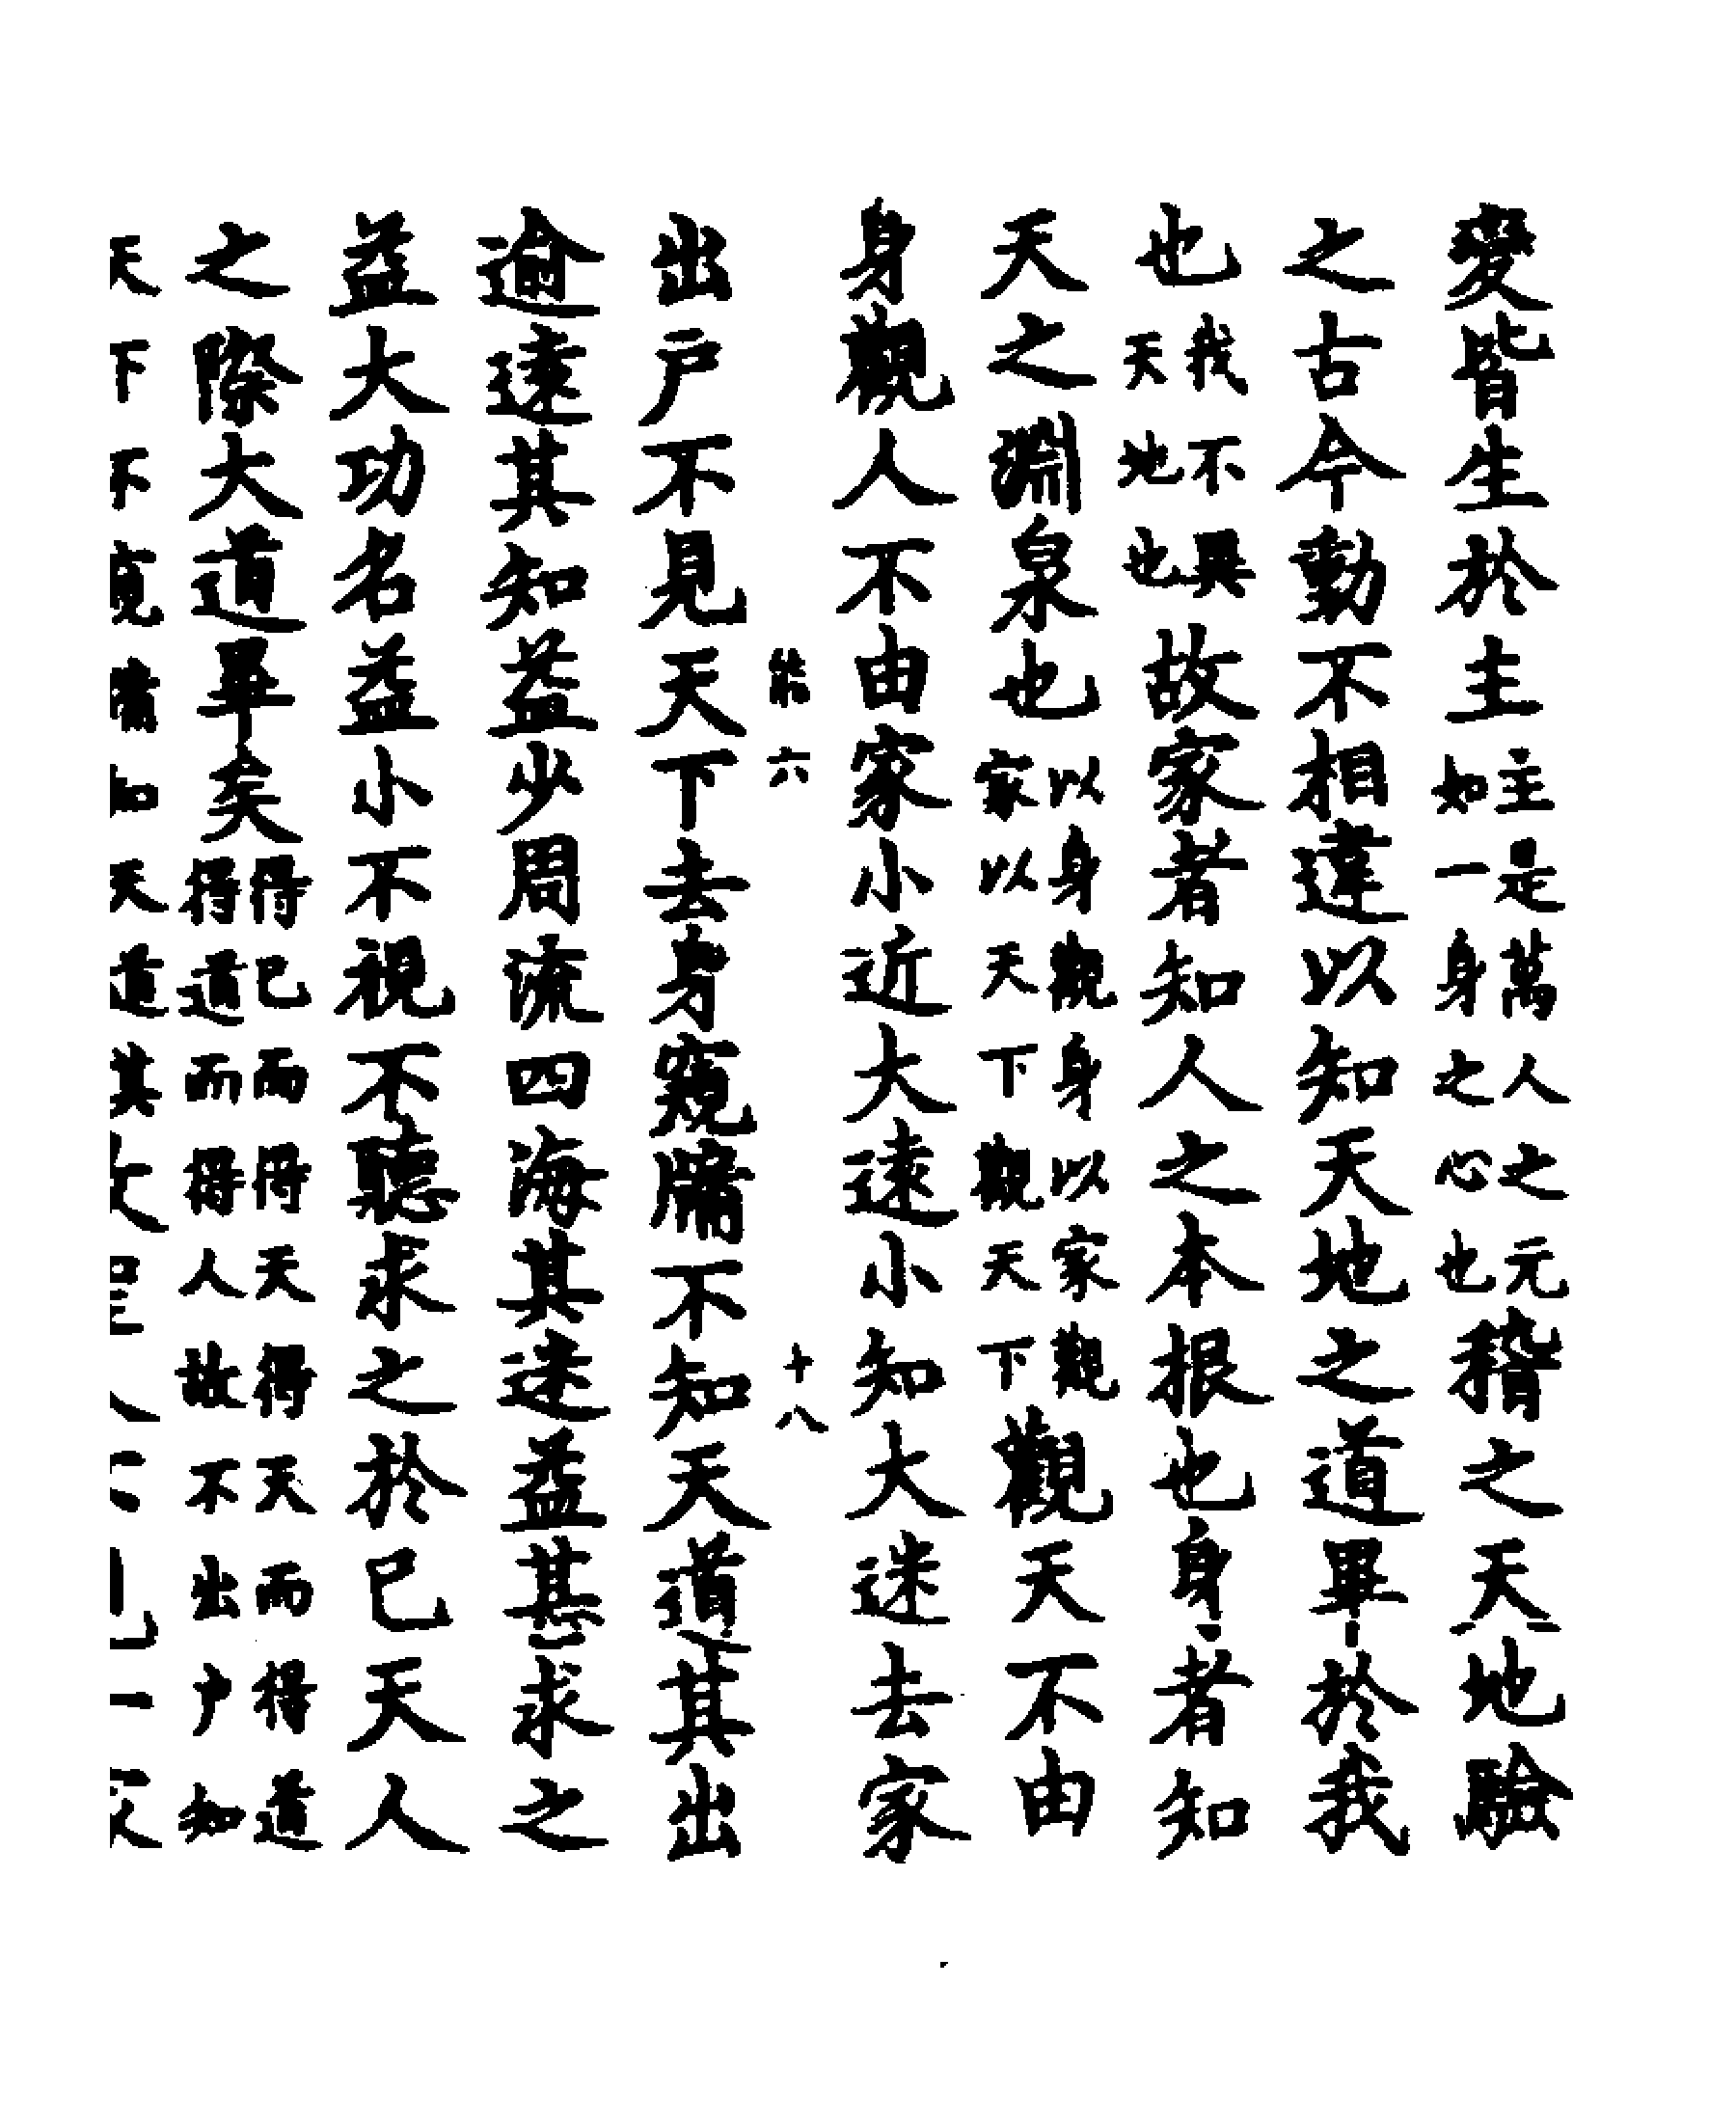 變皆生於主主是萬人之元如一身之心也稽之天地驗
之古今動不相違以知天地之道畢於我
也我不異天地也故家者知人之本根也身者知
天之淵泉也以身觀身以家觀家以天下觀天下觀天不由
身觀人不由家小近大遠小知大迷去家
能六 十八
出戶不見天下去身窺牖不知天道其出
逾遠其知益少周流四海其迷益甚求之
益大功名益小不視不聽求之於己天人
之際大道畢矣得己而得天得天而得道得道而得人故不出戶知
天下不窺牖知天道其